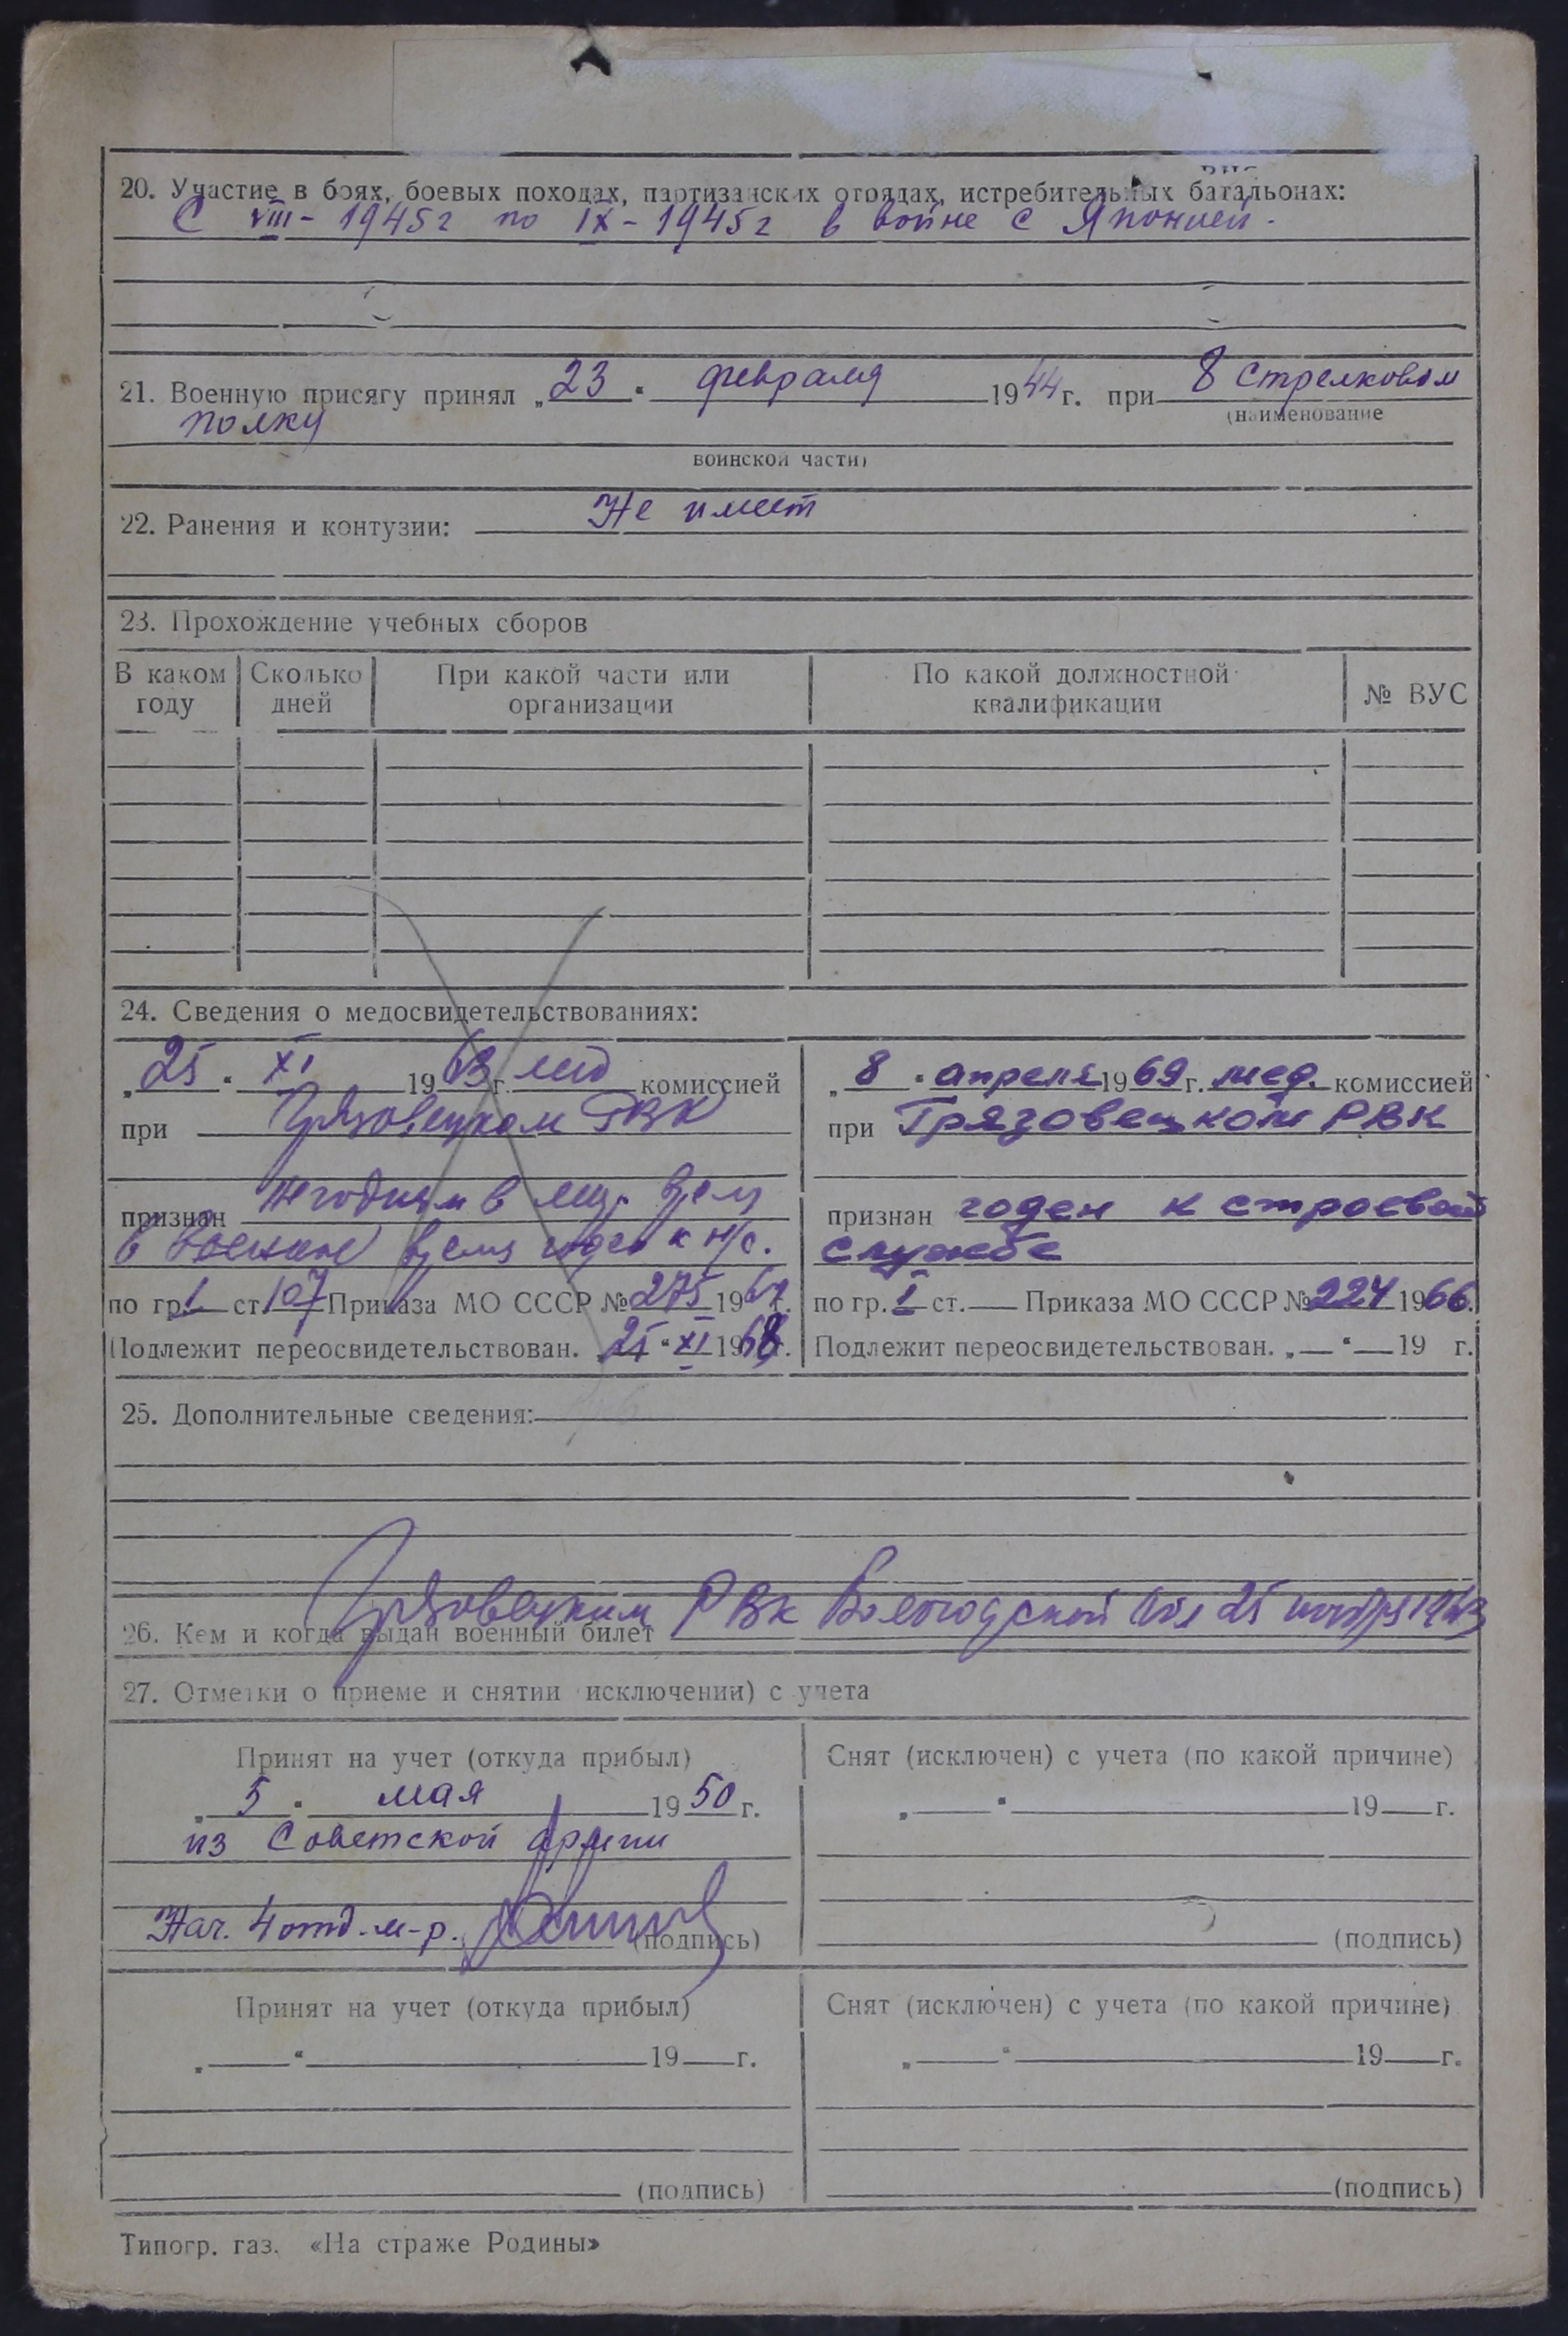 20. Участие в боях, боевых походах, партизанских отрядах, истребительных батальонах:
С VIII - 1945г по IX - 1945г в войне с Японией.
21. Военную присягу принял „23“ февраля 1944г. при 8 стрелковом
(наименование
полку
воинской части)
22. Ранения и контузии: Не имеет
23. Прохождение учебных сборов
В каком году
Сколько дней
При какой части или организации
По какой должностной квалификации
№ ВУС
24. Сведения о медосвидетельствованиях:
„25“ XI 1963г. мед комиссией
при Грязовецком РВК
признан негодным в мир. время
в военное время годен к н/с.
по гр. 1 ст. 107 Приказа МО СССР № 275 196 г.
Подлежит переосвидетельствован. „25“ XI 1968г.
„8“ апреля 1969г. мед. комиссией
при Грязовецком РВК
признан годен к строевой
службе
по гр. I ст. — Приказа МО СССР № 224 1966.
Подлежит переосвидетельствован. „—“ — 19 г.
25. Дополнительные сведения:
26. Кем и когда выдан военный билет Грязовецким РВК Вологодской обл 25 ноября 1963
27. Отметки о приеме и снятии (исключении) с учета
Принят на учет (откуда прибыл)
„5“ мая 1950г.
из Советской Армии
Нач. 4 отд. м-р.
(подпись)
Снят (исключен) с учета (по какой причине)
„ “ 19 г.
(подпись)
Принят на учет (откуда прибыл)
„ “ 19 г.
(подпись)
Снят (исключен) с учета (по какой причине)
„ “ 19 г.
(подпись)
Типогр. газ. «На страже Родины»